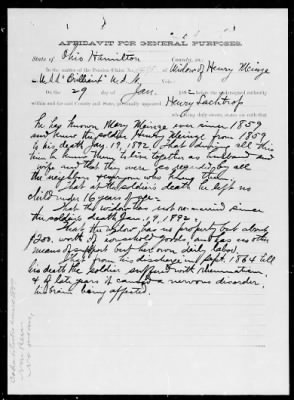 AFFIDAVIT FOR GENERAL PURPOSES.
State of Ohio Hamilton County, ss:
In the matter of the Pension Claim No. Widow of Henry Meinge
U.S.S. "Brilliant" U.S.N.
On the 29 day of Jan. 1892 before the undersigned authority
within and for said County and State, personally appeared Henry Lachtrop
being duly sworn, states on oath that
he has known Mary Meinge ever since 1859
and knew the soldier Henry Meinge from 1859
to his death Jany. 19, 1892, that during all this
time he knew them to live together as husband and
wife and that they were so regarded by all
the neighbors
That at the soldier's death he left no
child under 16 years of age.
That his widow has not remarried since
the soldier's death Jan. 19, 1892.
That the widow has no property but about
$200. worth of household goods, and has no other
means of support but her own daily labor.
That from his discharge in Sept. 1864 till
his death the soldier suffered with Rheumatism
& of late years it caused a nervous disorder,
his brain being affected